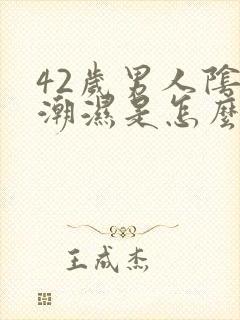 42歲男人陰
潮濕是怎麼
王成杰